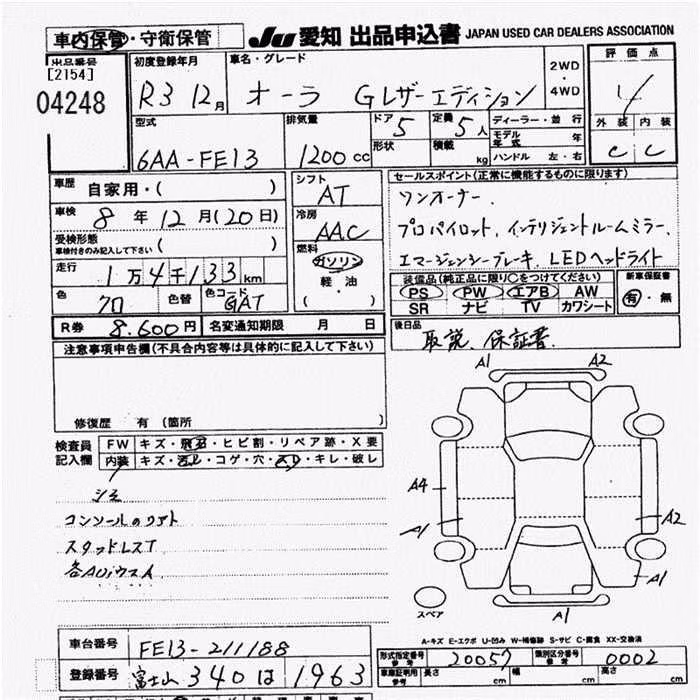 車内保管・守衛保管 JU 愛知 出品申込書 JAPAN USED CAR DEALERS ASSOCIATION
出品番号
[2154]
04248
初度登録年月 R3 12月
車名・グレード オーラ Gレザーエディション
2WD・4WD
評価点 4
型式 6AA-FE13
排気量 1200cc
ドア 5
形状
定員 5人
積載 kg
ディーラー・並行
モデル年式 年
ハンドル 左・右
外装 内装
C C
車歴 自家用・( )
シフト AT
車検 8年12月(20日)
冷房 AAC
受検形態 車検付きのみ記入して下さい ( )
燃料 ガソリン
軽油
( )
走行 1万4千133km
色 色替 色コード GAT
R券 8.600円 名変通知期限 月 日
セールスポイント(正常に機能するものに限ります)
ワンオーナー.
プロパイロット.インテリジェントルームミラー.
エマージェンシーブレーキ.LEDヘッドライト
装備品(純正品に限り○をつけてください) 新車保証書
PS PW エアB AW 有・無
SR ナビ TV カワシート
後日品 取説、保証書.
注意事項申告欄(不具合内容等は具体的に記入して下さい)
修復歴 有(箇所 )
検査員記入欄
FW キズ・飛石・ヒビ割・リペア跡・X要
内装 キズ・汚レ・コゲ・穴・スリ・キレ・破レ
シミ
コンソールのリアト
スタッドレスT
A1 A2
A4
A1 A2
A1
スペア A1
A-キズ E-エクボ U-凹み W-補修跡 S-サビ C-腐食 XX-交換済
車台番号 FE13-211188
登録番号 富士山 340 は 1963
形式指定番号 参考 20057 類別区分番号 参考 0002
車庫証明用 参考 長さ cm 幅 cm 高さ cm